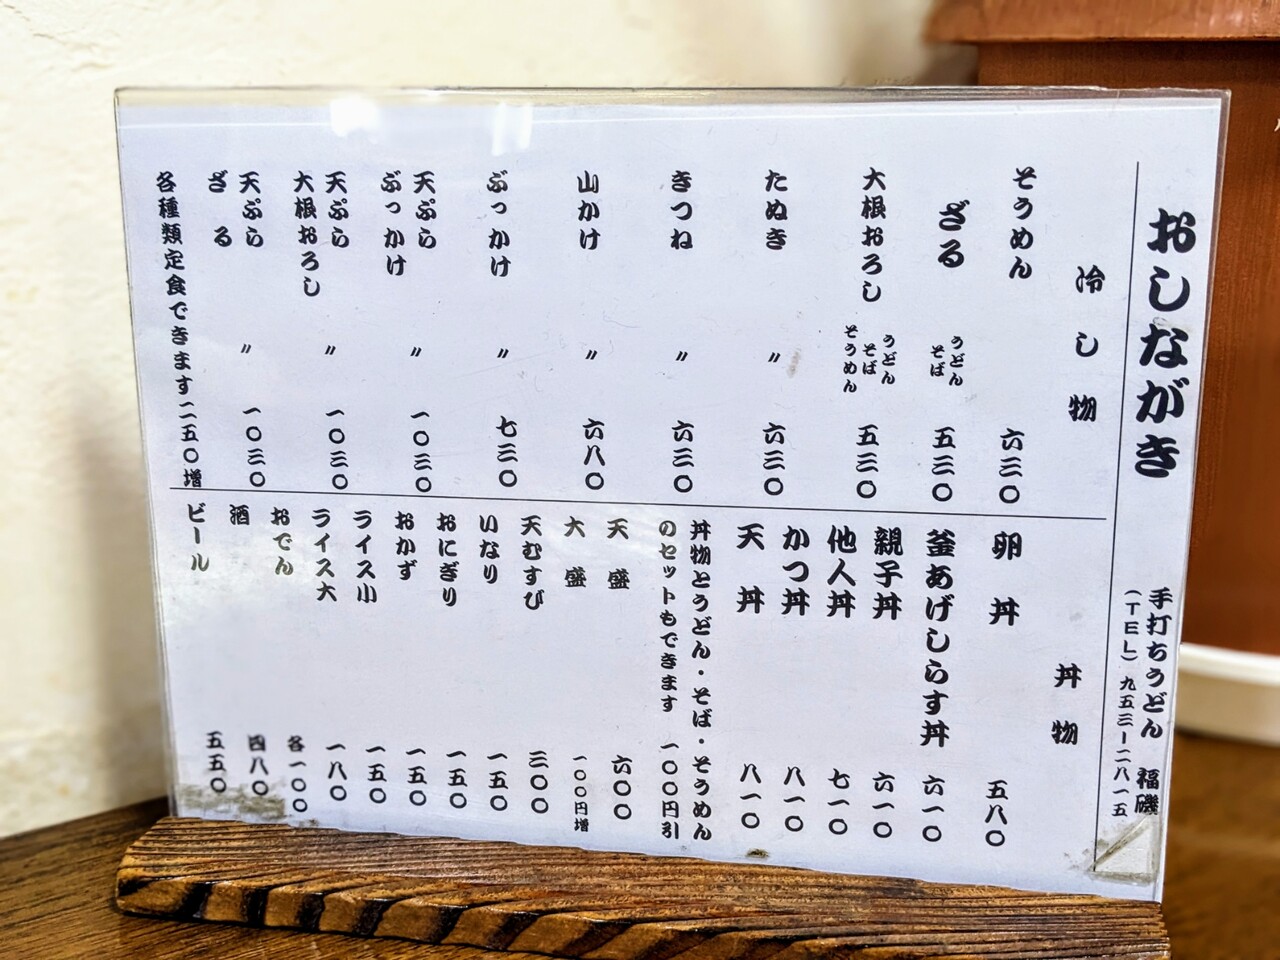 おしながき
手打ちうどん 福磯
(TEL) 九五三ー二八一五
冷し物
そうめん 六三〇
ざる うどん そば 五三〇
大根おろし うどん そば そうめん 五三〇
たぬき 〃 六三〇
きつね 〃 六三〇
山かけ 〃 六八〇
ぶっかけ 〃 七三〇
天ぷら ぶっかけ 〃 一〇三〇
天ぷら 大根おろし 〃 一〇三〇
天ぷら ざる 〃 一〇三〇
各種類定食できます二五〇増
丼物
卵丼 五八〇
釜あげしらす丼 六一〇
親子丼 六一〇
他人丼 七一〇
かつ丼 八一〇
天丼 八一〇
丼物とうどん・そば・そうめん
のセットもできます 一〇〇円引
天盛 六〇〇
大盛 一〇〇円増
天むすび 三〇〇
いなり 一五〇
おにぎり 一五〇
おかず 一五〇
ライス小 一五〇
ライス大 一八〇
おでん 各一〇〇
酒 四八〇
ビール 五五〇